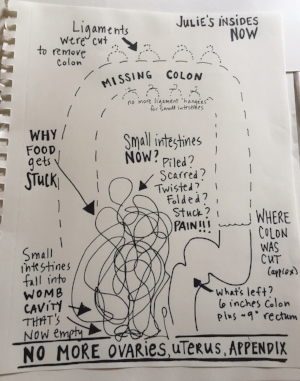 JULIE'S INSIDES
NOW
Ligaments
were cut
to remove
colon
MISSING COLON
no more ligament "hangers"
for small intestines
WHY
FOOD
gets
STUCK
Small intestines
NOW?
Piled?
Scarred?
Twisted?
Folded?
Stuck?
PAIN!!!
WHERE
COLON
WAS
CUT
(approx)
Small
intestines
fall into
WOMB
CAVITY
THAT'S
NOW empty
What's left?
6 inches colon
plus ~9" rectum
NO MORE OVARIES, UTERUS, APPENDIX